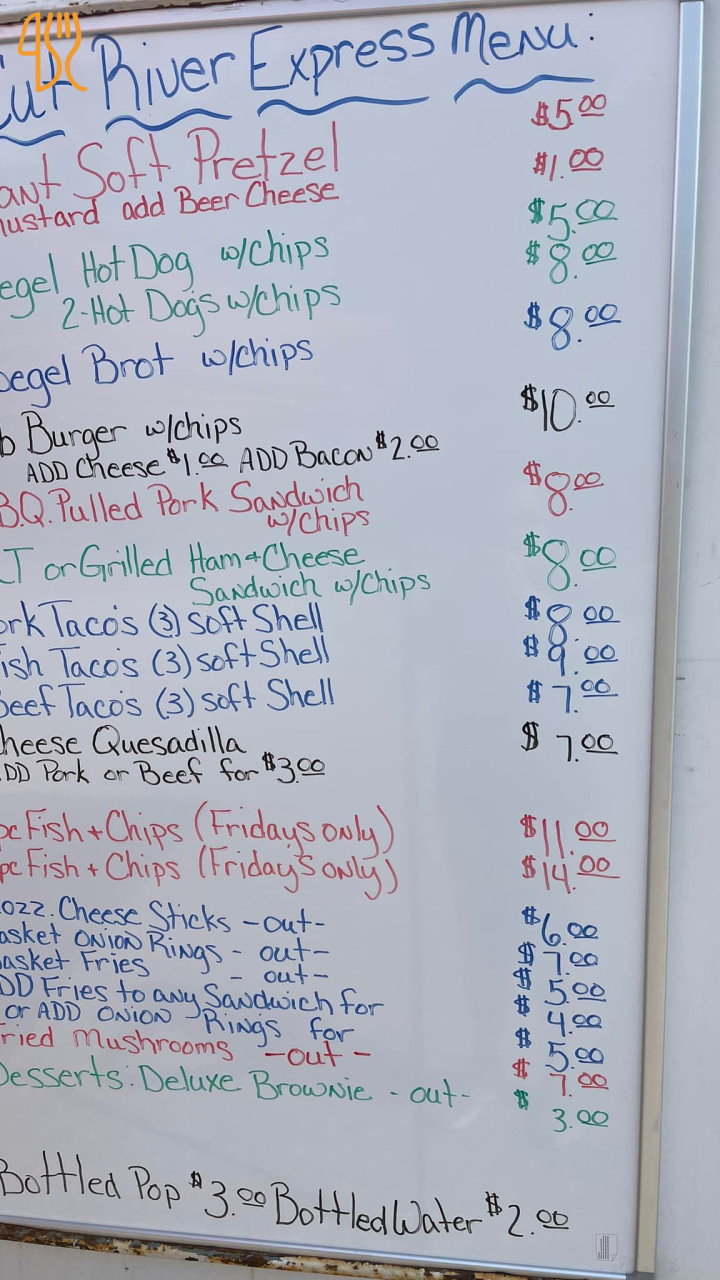 Cut River Express Menu:
ant Soft Pretzel $5.00
mustard add Beer Cheese $1.00
egel Hot Dog w/chips $5.00
2-Hot Dogs w/chips $8.00
oegel Brot w/chips $8.00
b Burger w/chips $10.00
ADD Cheese $1.00 ADD Bacon $2.00
B.Q. Pulled Pork Sandwich $8.00
w/chips
LT or Grilled Ham + Cheese $8.00
Sandwich w/chips
ork Taco's (3) soft Shell $8.00
ish Taco's (3) soft Shell $9.00
Beef Taco's (3) soft Shell $7.00
heese Quesadilla $7.00
DD Pork or Beef for $3.00
pc Fish + Chips (Fridays only) $11.00
pc Fish + Chips (Friday's only) $14.00
022. Cheese Sticks -out- $6.00
asket Onion Rings - out- $7.00
asket Fries - out- $5.00
DD Fries to any Sandwich for $4.00
or ADD Onion Rings for $5.00
ried Mushrooms -out- $7.00
Desserts: Deluxe Brownie - out- $3.00
Bottled Pop $3.00 Bottled Water $2.00